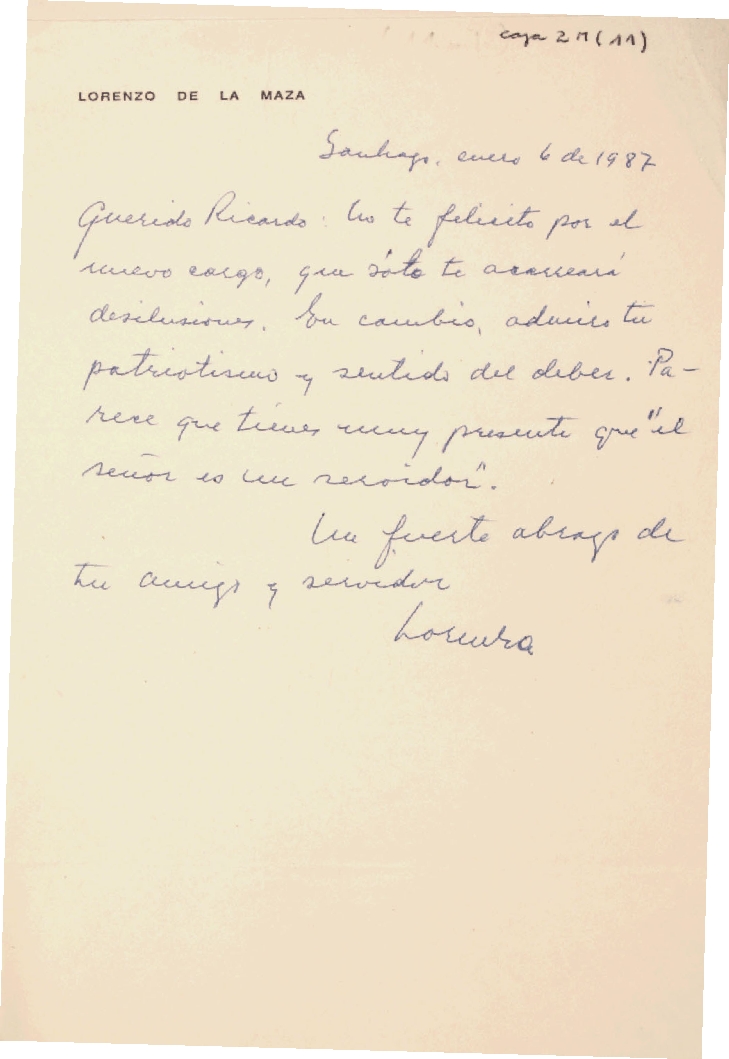 caja 2 M (11)
LORENZO DE LA MAZA
Santiago, enero 6 de 1987
Querido Ricardo: No te felicito por el
nuevo cargo, que sólo te acarreará
desilusiones. En cambio, admiro tu
patriotismo y sentido del deber. Pa-
rece que tienes muy presente que "el
señor es un servidor".
Un fuerte abrazo de
tu amigo y servidor
Lorenzo